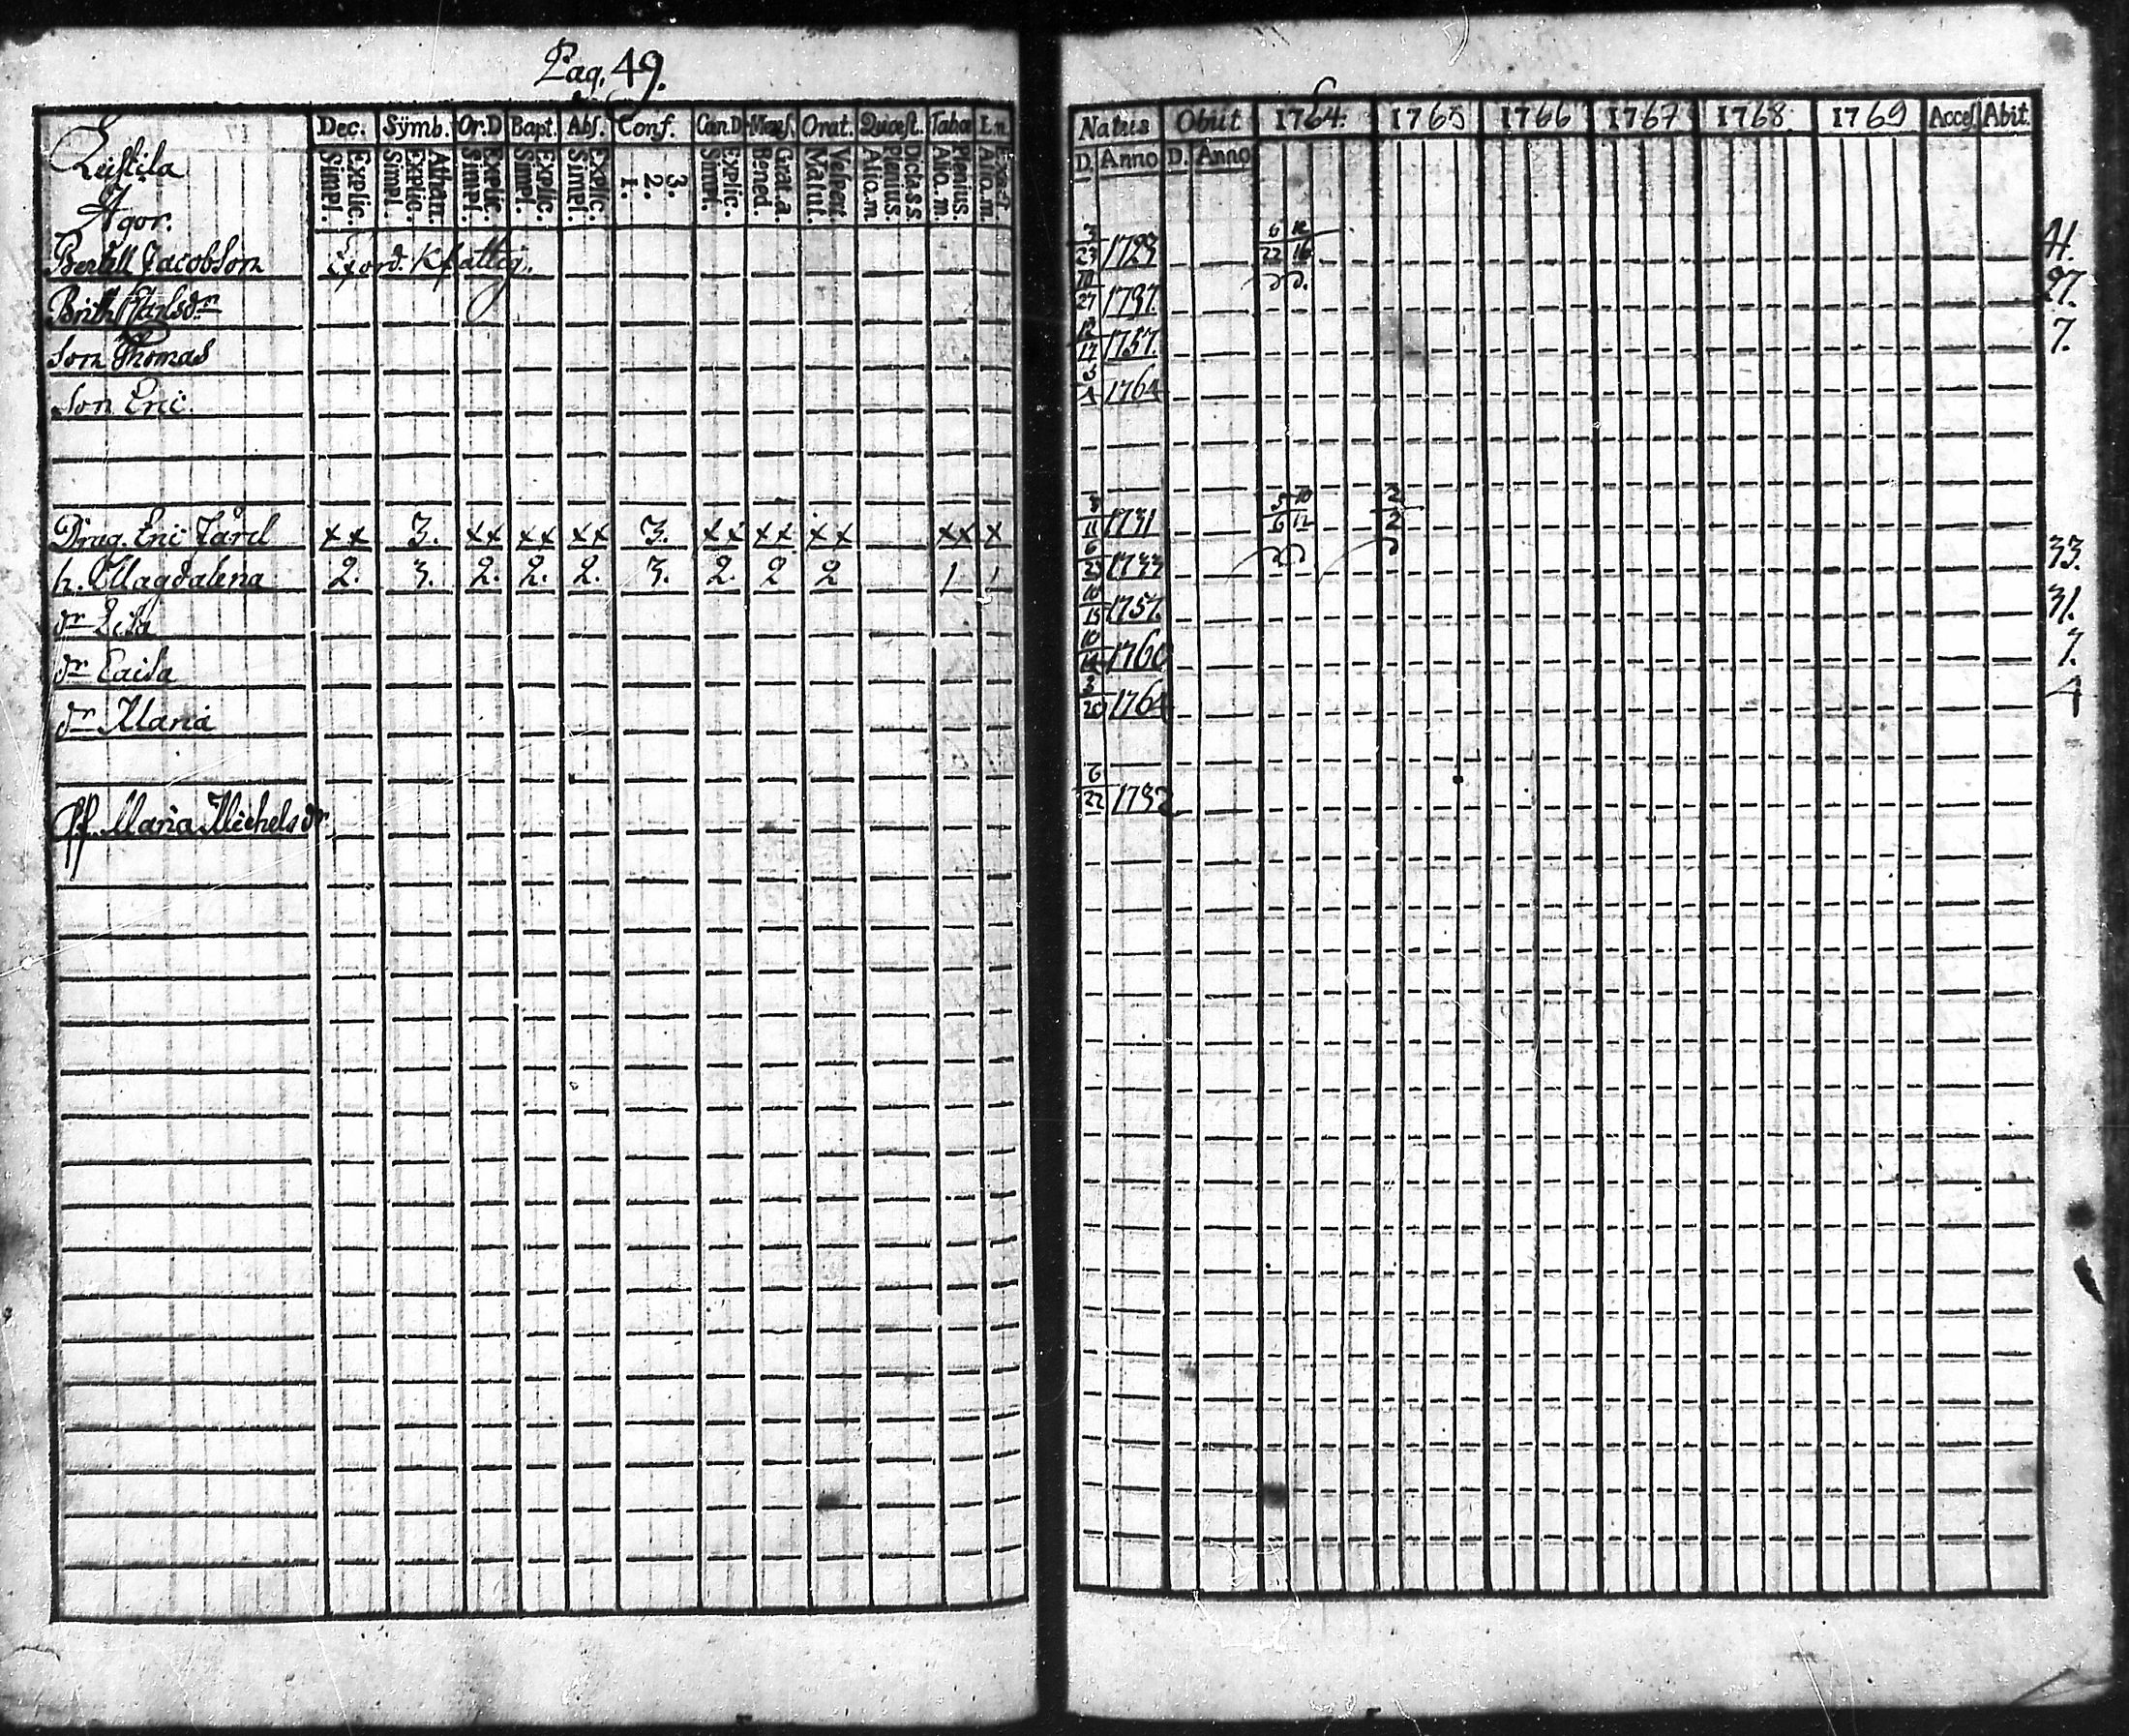 Pag. 49.
Dec. Sÿmb. Or.D Bapt. Abs. Conf. Can.D Mens. Orat. Quæst. Tabæ
Explic. Simpl. Athan. Explic. Simpl. Explic. Simpl. Explic. Simpl. Explic. Simpl. 3. 2. 1. Explic. Simpl. Grat.a Bened. Vespert. Matut. Dicta s.s. Plenius Aliq.m. Plenius. Aliq.m. Aliq.m.
Leistila
Agor.
Bertill Jacobson
Brith Karlsdr
Son Thomas
Son Eric
Drag. Eric Färd xx 3. xx xx xx 3. xx xx xx xx x
h. Magdalena 2. 3. 2. 2. 2. 3. 2. 2 2 1 1
dr Lisa
dr Caisa
dr Maria
Maria Michelsdr
Natus Obiit 1764. 1765 1766 1767 1768. 1769 Acces Abit
D. Anno D. Anno
3/23 1723 6/22 12/16 41.
10/27 1737. 27.
12/17 1757. 7.
1764
11 1731 5/6 10/12 2/2
6/23 1733 33.
10/15 1757. 31.
10 1760 7.
3/20 1764 4
6/22 1732